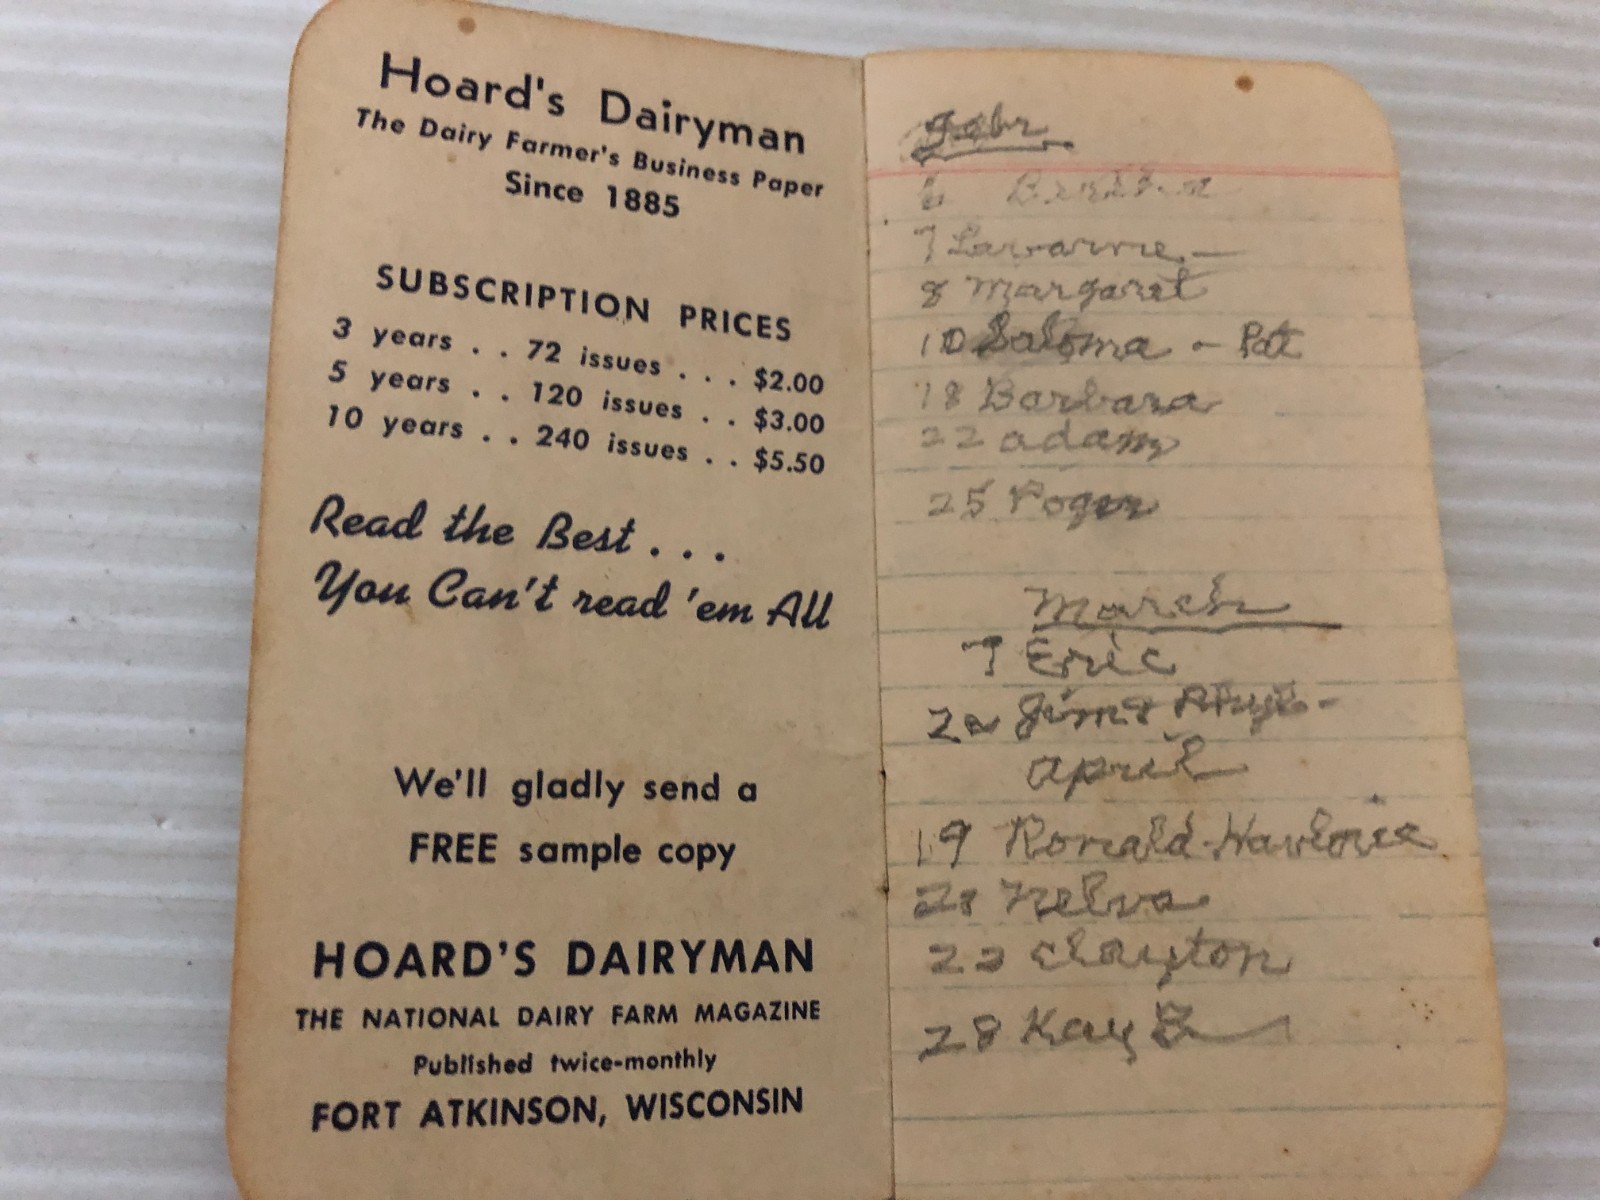 Hoard's Dairyman
The Dairy Farmer's Business Paper
Since 1885
SUBSCRIPTION PRICES
3 years . . 72 issues . . . $2.00
5 years . . 120 issues . . $3.00
10 years . . 240 issues . . $5.50
Read the Best . . .
You Can't read 'em All
We'll gladly send a
FREE sample copy
HOARD'S DAIRYMAN
THE NATIONAL DAIRY FARM MAGAZINE
Published twice-monthly
FORT ATKINSON, WISCONSIN
6
7 Lavarne -
8 Margaret
10 Saloma - Pat
18 Barbara
22 adam
25 Roger
March
7 Eric
Jim &
april
19 Ronald
Nelva
22 Clayton
28 Kay